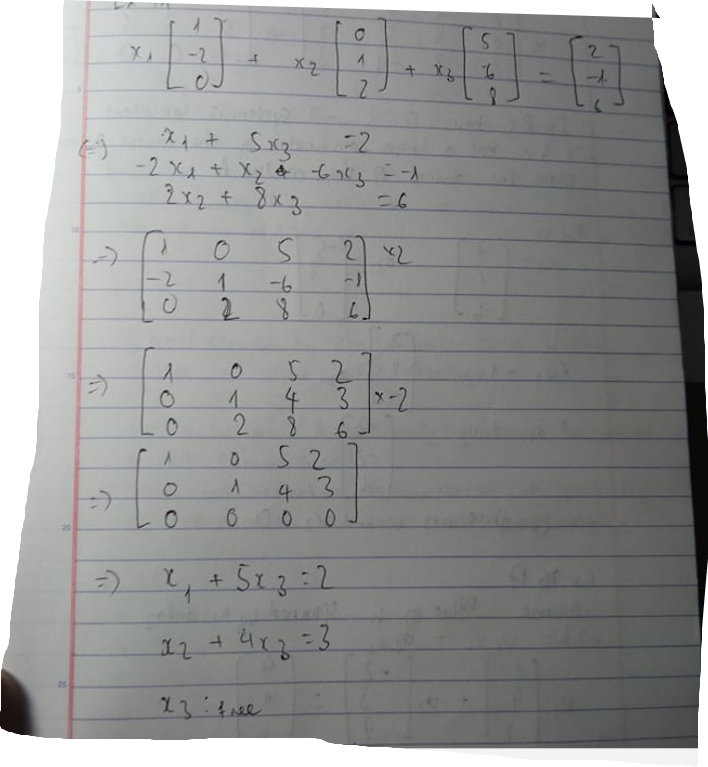 x1 [1 -2 0] + x2 [0 1 2] + x3 [5 -6 8] = [2 -1 6]
(=) x1 + 5x3 = 2
-2x1 + x2 + -6x3 = -1
2x2 + 8x3 = 6
=) [1 0 5 2] x2
[-2 1 -6 -1]
[0 2 8 6]
=) [1 0 5 2]
[0 1 4 3] x-2
[0 2 8 6]
[1 0 5 2]
=) [0 1 4 3]
[0 0 0 0]
=) x1 + 5x3 = 2
x2 + 4x3 = 3
x3 : free